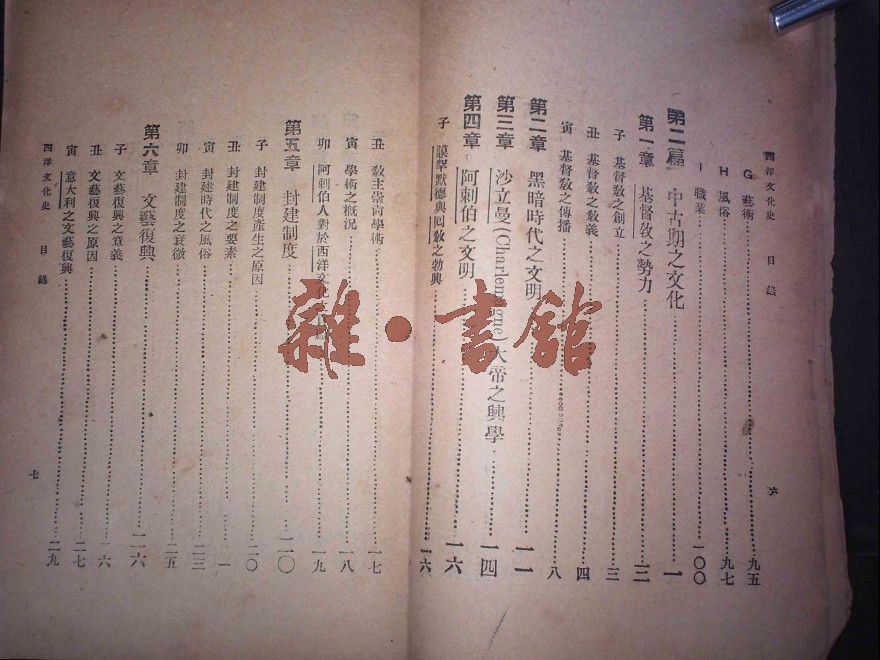 西洋文化史 目錄 六
G 藝術 九五
H 風俗 九七
I 職業 一〇〇
第二篇 中古期之文化 一
第一章 基督教之勢力 三
子 基督教之創立 三
丑 基督教之教義 四
寅 基督教之傳播 八
第二章 黑暗時代之文明 一一
第三章 沙立曼(Charlemaigne)大帝之興學 一四
第四章 阿剌伯之文明 一六
子 謨罕默德與回教之勃興 一六
丑 教主崇尚學術 一七
寅 學術之概況 一八
卯 阿剌伯人對於西洋文化 一九
第五章 封建制度 二〇
子 封建制度產生之原因 二〇
丑 封建制度之要素 一
寅 封建時代之風俗 二三
卯 封建制度之衰微 二五
第六章 文藝復興 二六
子 文藝復興之意義 六
丑 文藝復興之原因 二七
寅 意大利之文藝復興 二九
西洋文化史 目錄 七
雜·書館